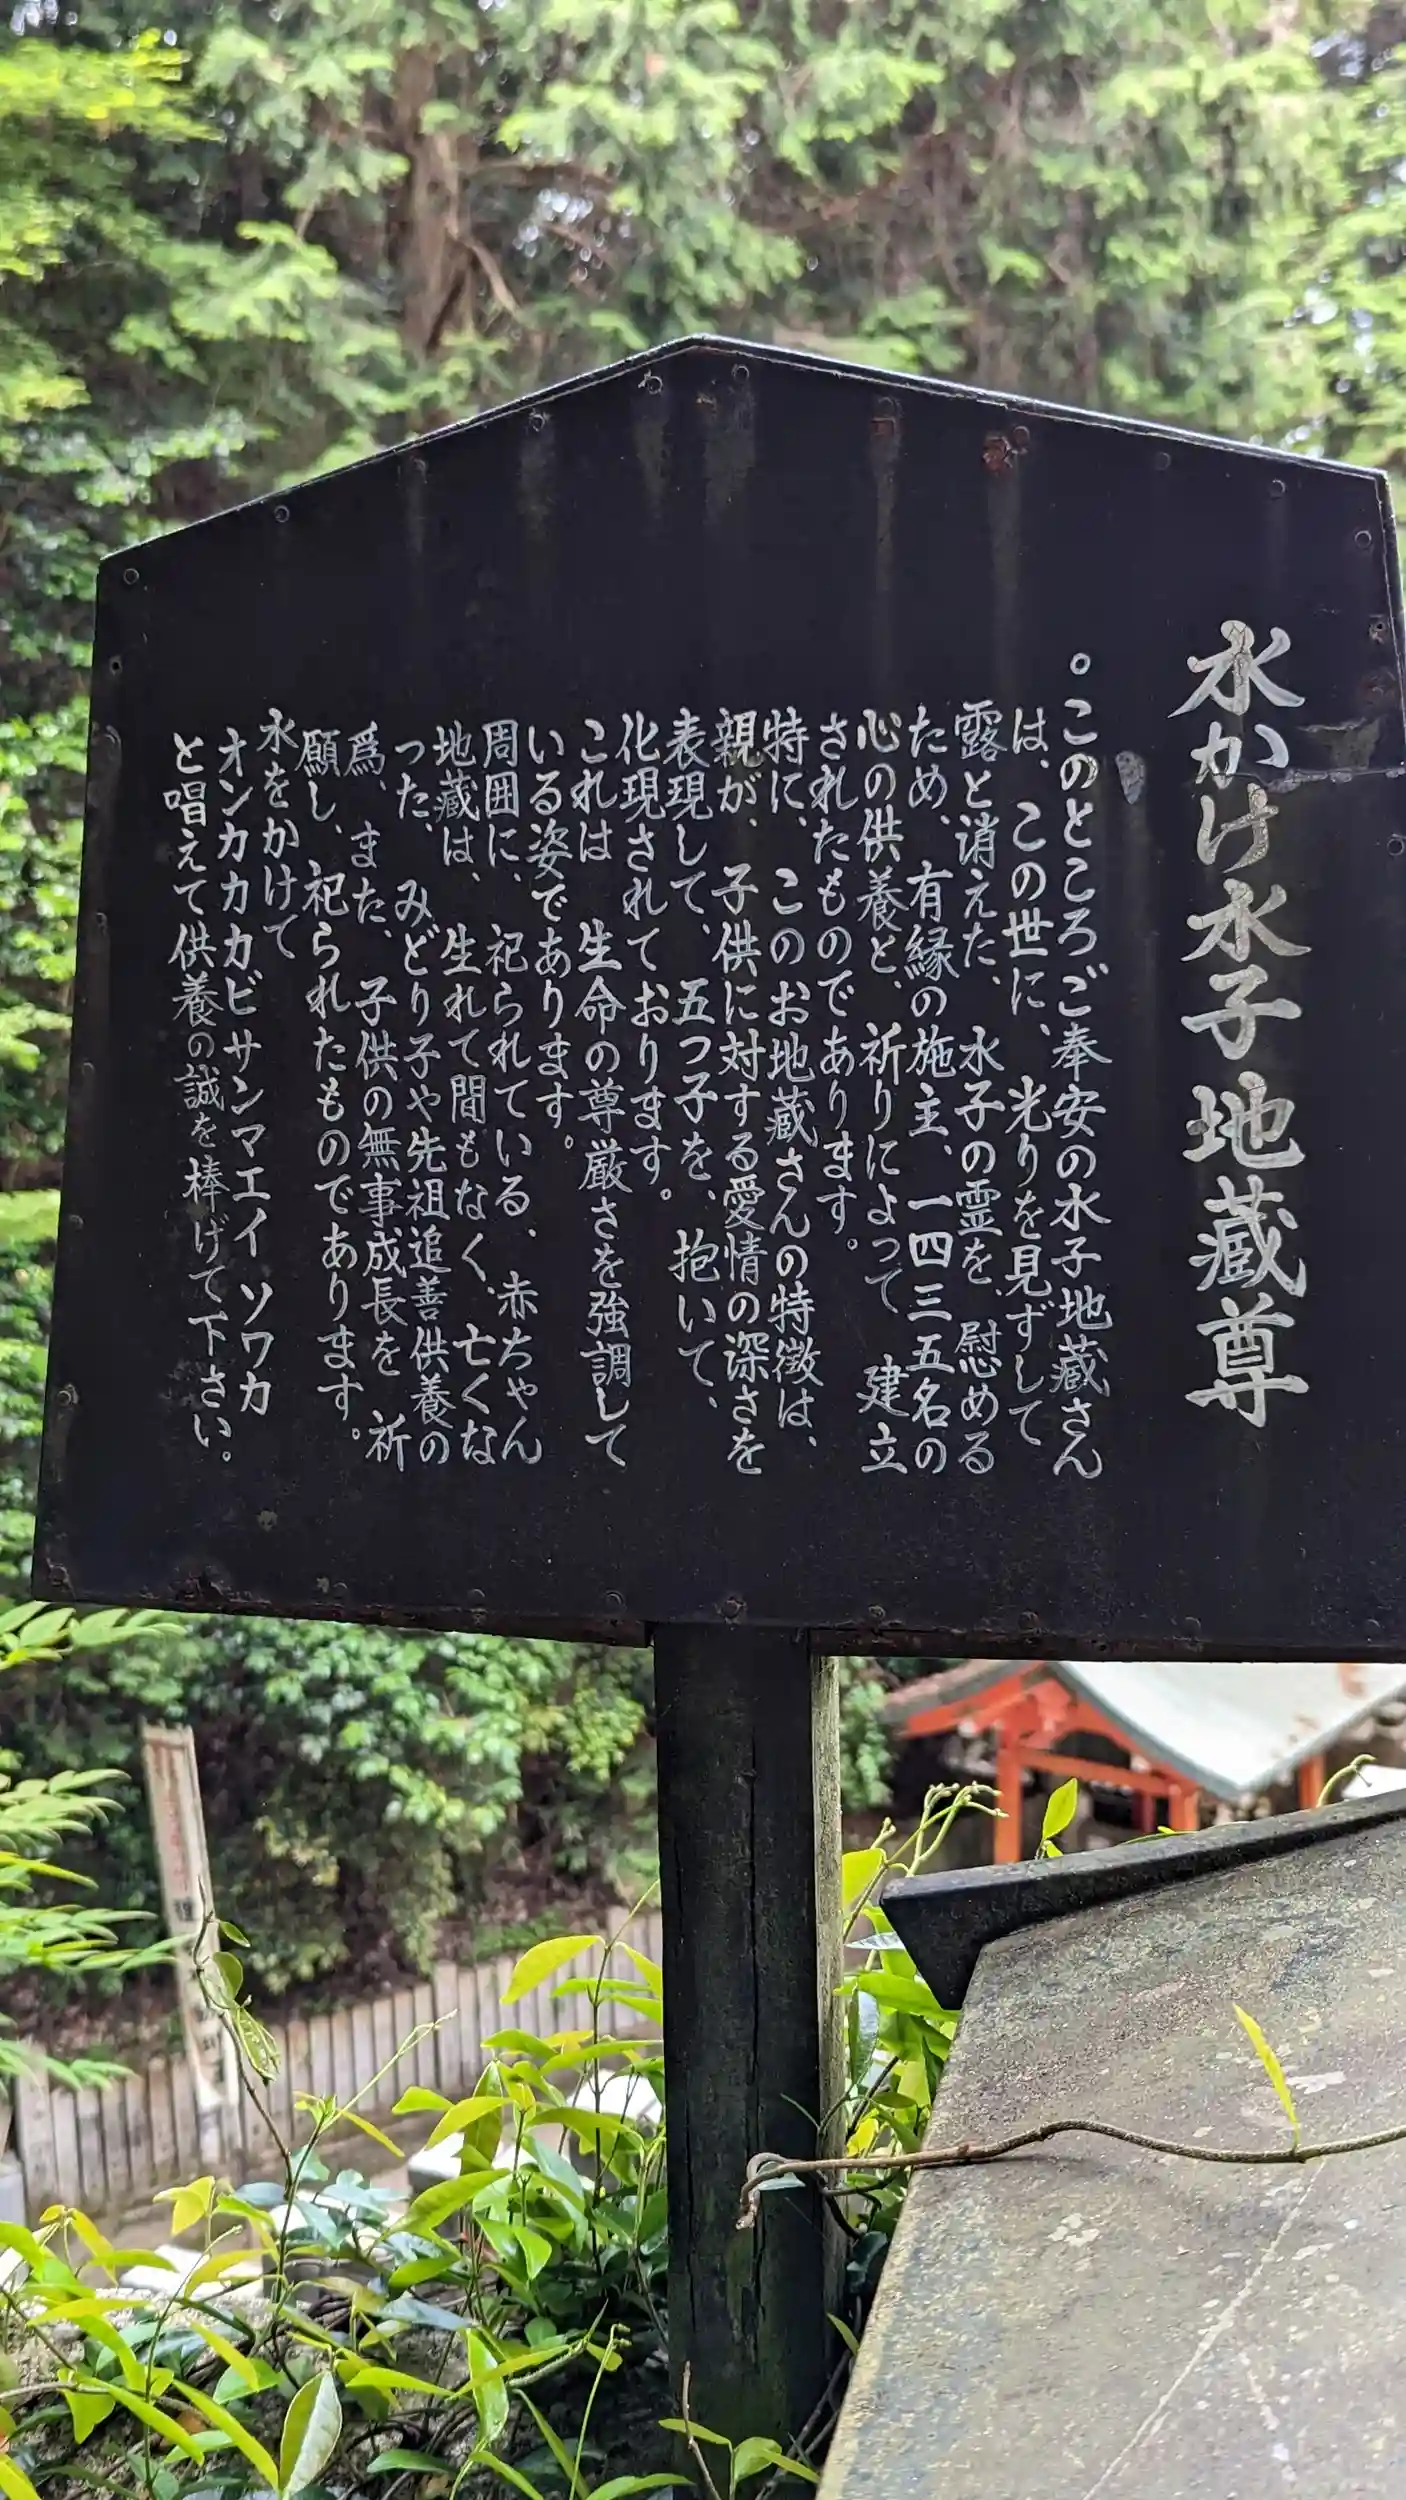 水かけ水子地蔵尊
。このところご奉安の水子地蔵さん
は、この世に、光りを見ずして
露と消えた、水子の霊を、慰める
ため、有縁の施主、一四三五名の
心の供養と、祈りによって 建立
されたものであります。
特に、このお地蔵さんの特徴は、
親が、子供に対する愛情の深さを
表現して、五つ子を、抱いて、
化現されております。
これは 生命の尊厳さを強調して
いる姿であります。
周囲に、祀られている、赤ちゃん
地蔵は、生れて間もなく、亡くな
った、みどり子や先祖追善供養の
爲、また、子供の無事成長を 祈
願し、祀られたものであります。
水をかけて
オンカカカビサンマエイ ソワカ
と唱えて供養の誠を棒げて下さい。